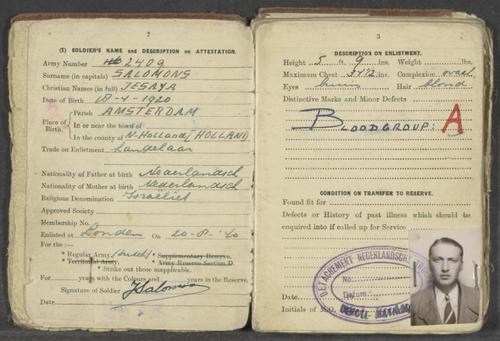 2
(1) SOLDIER'S NAME and DESCRIPTION on ATTESTATION.
Army Number 2409
Surname (in capitals) SALOMONS
Christian Names (in full) JESAYA
Date of Birth 18-1-1920
Place of Birth. Parish AMSTERDAM
In or near the town of
In the county of N-Holland, HOLLAND
Trade on Enlistment handelaar
Nationality of Father at birth Nederlandsch
Nationality of Mother at birth Nederlandsch
Religious Denomination Israeliet
Approved Society
Membership No.
Enlisted at Londen On 20-8-40
For the :—
* Regular Army. (Dutch) * Supplementary Reserve.
* Territorial Army. * Army Reserve Section D.
* Strike out those inapplicable.
For years with the Colours and years in the Reserve.
Signature of Soldier JSalomons
Date
3
DESCRIPTION ON ENLISTMENT.
Height 5 ft. 9 ins. Weight lbs.
Maximum Chest 34½ ins. Complexion ovaal
Eyes bruin Hair blond
Distinctive Marks and Minor Defects
BLOODGROUP: A
CONDITION ON TRANSFER TO RESERVE.
Found fit for
Defects or History of past illness which should be
enquired into if called up for Service.
DETACHEMENT NEDERLANDSCHE
No.
Datum:
Date
Initials of M.O.